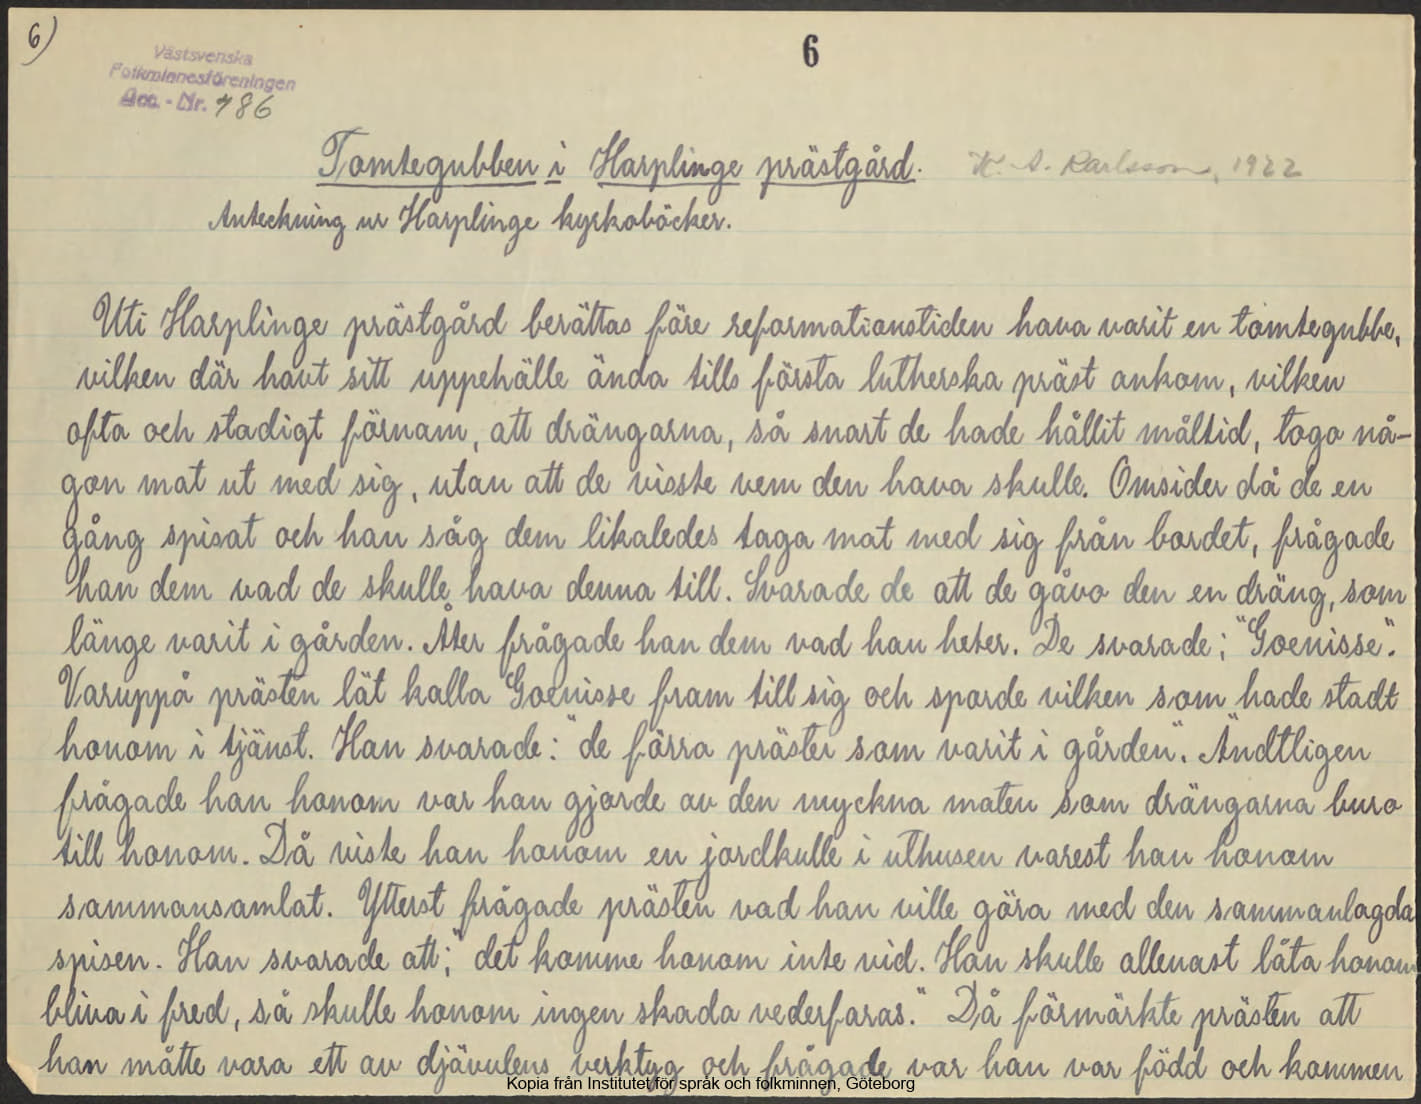 6)
6
Västsvenska
Folkminnesföreningen
Acc. - Nr. 786
Tomtegubben i Harplinge prästgård. K. A. Karlsson, 1922
Anteckning ur Harplinge kyrkoböcker.
Uti Harplinge prästgård berättas före reformationstiden hava varit en tomtegubbe,
vilken där havt sitt uppehälle ända tills första lutherska präst ankom, vilken
ofta och stadigt förnam, att drängarna, så snart de hade hållit måltid, togo nå-
gon mat ut med sig, utan att de visste vem den hava skulle. Omsider då de en
gång spisat och han såg dem likaledes taga mat med sig från bordet, frågade
han dem vad de skulle hava denna till. Svarade de att de gåvo den en dräng, som
länge varit i gården. Åter frågade han dem vad han heter. De svarade; "Goenisse".
Varuppå prästen lät kalla Goenisse fram till sig och sporde vilken som hade stadt
honom i tjänst. Han svarade: "de förra präster som varit i gården". Ändtligen
frågade han honom var han gjorde av den myckna maten som drängarna buro
till honom. Då viste han honom en jordkulle i uthusen varest han honom
sammansamlat. Ytterst frågade prästen vad han ville göra med den sammanlagda
spisen. Han svarade att; "det komme honom inte vid. Han skulle allenast låta honom
bliva i fred, så skulle honom ingen skada vederfaras." Då förmärkte prästen att
han måtte vara ett av djävulens verktyg och frågade var han var född och kommen
Kopia från Institutet för språk och folkminnen, Göteborg